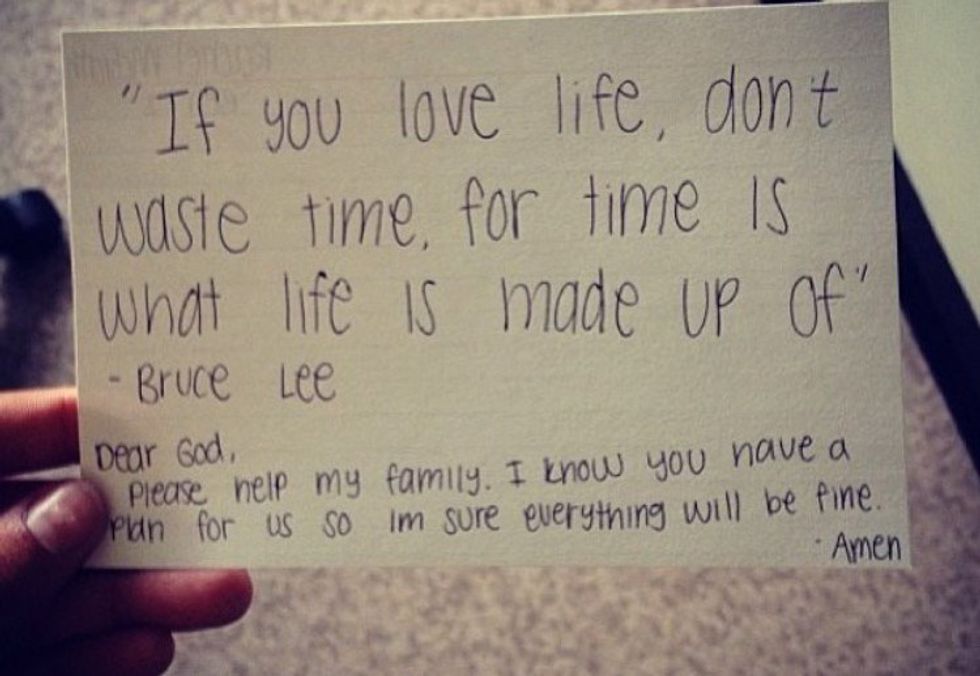 "If you love life, don't
waste time, for time is
what life is made up of"
- Bruce Lee
Dear God,
Please help my family. I know you have a
plan for us so im sure everything will be fine.
- Amen